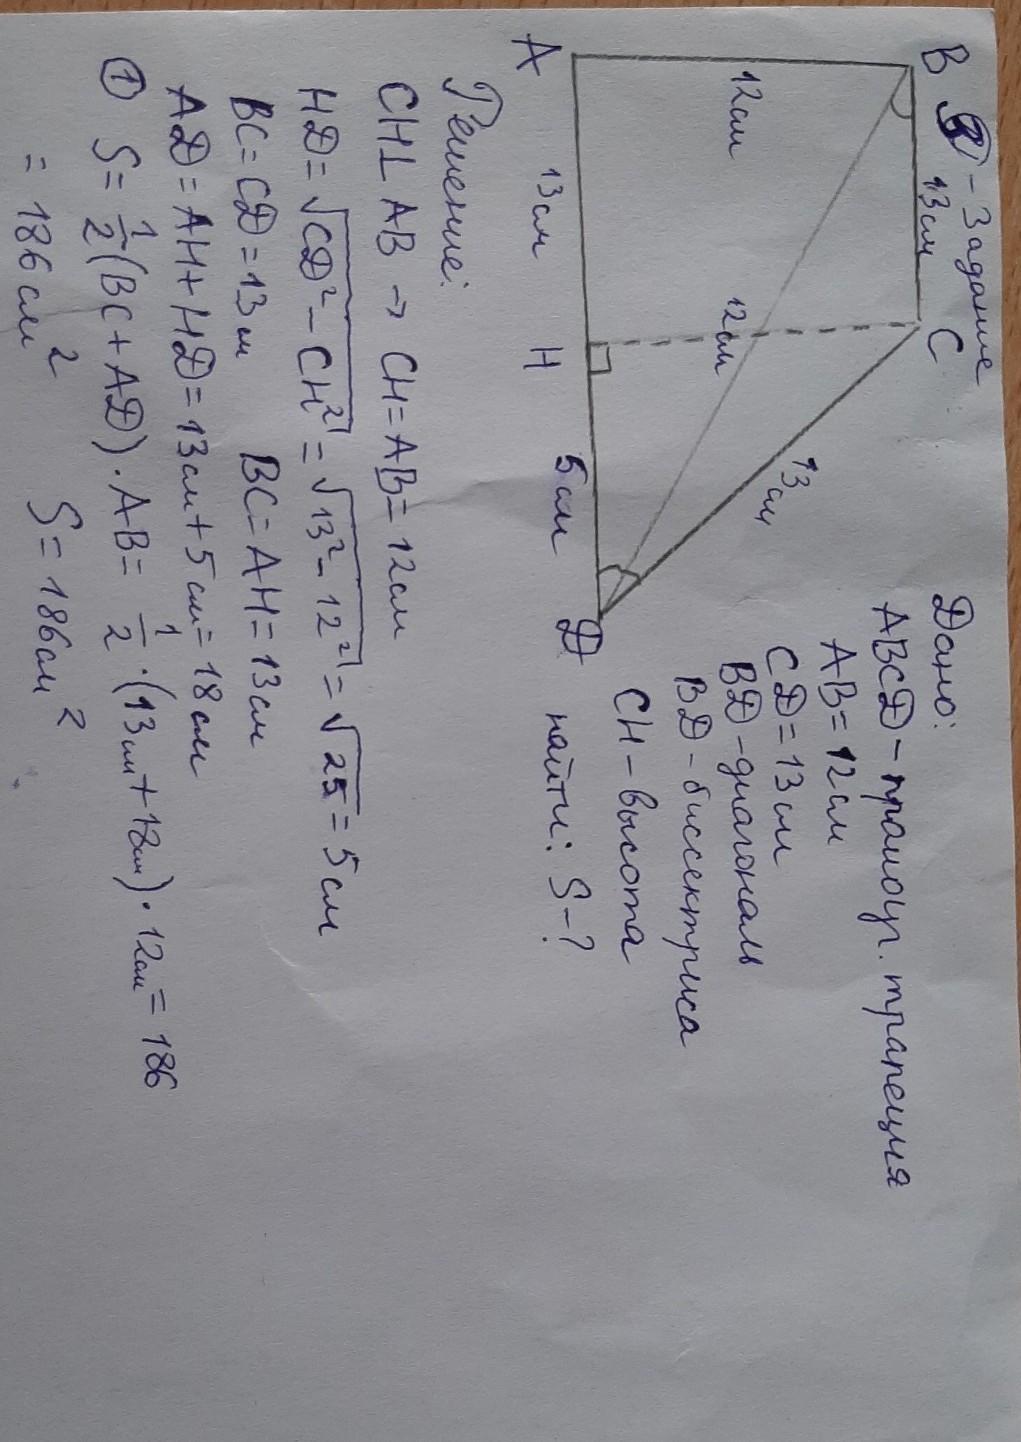 2 - Задание
B
C
A
H
D
12см
13см
12см
13см
13см
5см
Дано:
ABCD - прямоуг. трапеция
AB = 12см
CD = 13см
BD - диагональ
BD - биссектриса
CH - высота
найти: S - ?
Решение:
CH⊥AB → CH = AB = 12см
HD = √CD² - CH² = √13² - 12² = √25 = 5см
BC = CD = 13см BC = AH = 13см
AD = AH + HD = 13см + 5см = 18см
① S = 1/2 (BC + AD) · AB = 1/2 · (13см + 18см) · 12см = 186
= 186см² S = 186см²